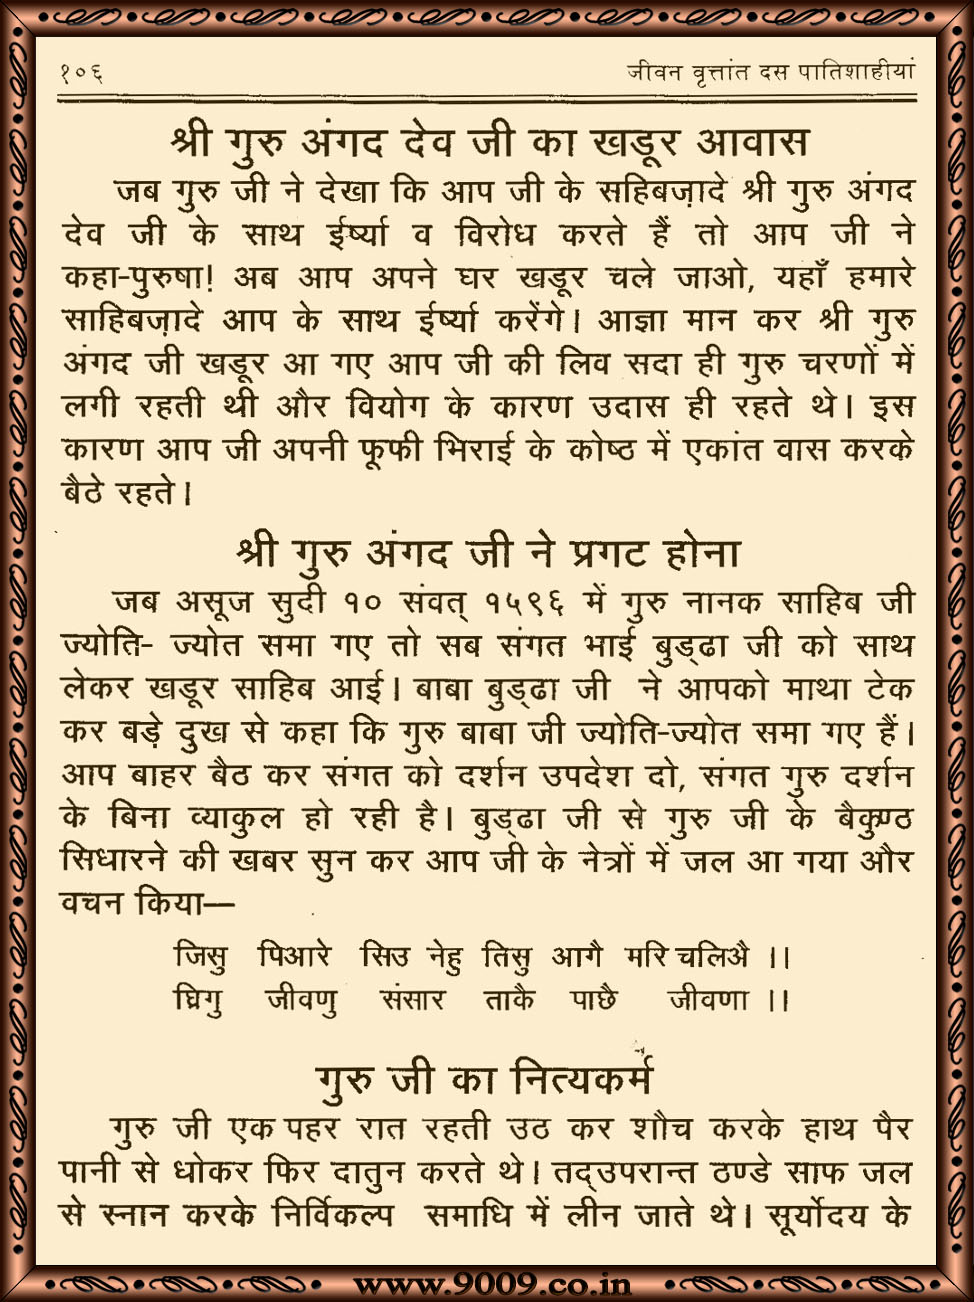 १०६ जीवन वृत्तांत दस पातिशाहीयां
श्री गुरु अंगद देव जी का खडूर आवास
जब गुरु जी ने देखा कि आप जी के सहिबज़ादे श्री गुरु अंगद
देव जी के साथ ईर्ष्या व विरोध करते हैं तो आप जी ने
कहा-पुरुषा! अब आप अपने घर खडूर चले जाओ, यहाँ हमारे
साहिबज़ादे आप के साथ ईर्ष्या करेंगे। आज्ञा मान कर श्री गुरु
अंगद जी खडूर आ गए आप जी की लिव सदा ही गुरु चरणों में
लगी रहती थी और वियोग के कारण उदास ही रहते थे। इस
कारण आप जी अपनी फूफी भिराई के कोष्ठ में एकांत वास करके
बैठे रहते।
श्री गुरु अंगद जी ने प्रगट होना
जब असूज सुदी १० संवत् १५९६ में गुरु नानक साहिब जी
ज्योति- ज्योत समा गए तो सब संगत भाई बुड्ढा जी को साथ
लेकर खडूर साहिब आई। बाबा बुड्ढा जी ने आपको माथा टेक
कर बड़े दुख से कहा कि गुरु बाबा जी ज्योति-ज्योत समा गए हैं।
आप बाहर बैठ कर संगत को दर्शन उपदेश दो, संगत गुरु दर्शन
के बिना व्याकुल हो रही है। बुड्ढा जी से गुरु जी के बैकुण्ठ
सिधारने की खबर सुन कर आप जी के नेत्रों में जल आ गया और
वचन किया—
जिसु पिआरे सिउ नेहु तिसु आगै मरि चलिअै ।।
घ्रिगु जीवणु संसार ताकै पाछै जीवणा ।।
गुरु जी का नित्यकर्म
गुरु जी एक पहर रात रहती उठ कर शौच करके हाथ पैर
पानी से धोकर फिर दातुन करते थे। तद्उपरान्त ठण्डे साफ जल
से स्नान करके निर्विकल्प समाधि में लीन जाते थे। सूर्योदय के
www.9009.co.in